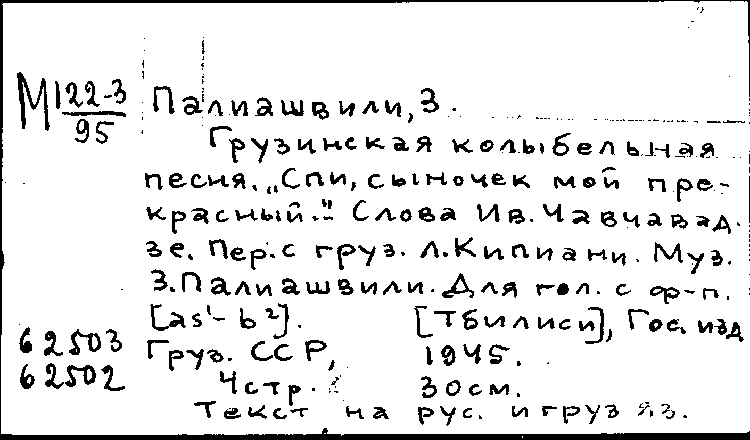 М 122-3/95 Палиашвили, З.
Грузинская колыбельная
песня. „Спи, сыночек мой пре-
красный." Слова Ив. Чавчавад.
зе. Пер. с груз. Л. Кипиани. Муз.
З. Палиашвили. Для гол. с ф-п.
[as¹- b²]. [Тбилиси], Гос. изд
62503 Груз. ССР, 1945.
62502 4 стр. 30 см.
Текст на рус. и груз яз.